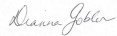 Dianna Gobler